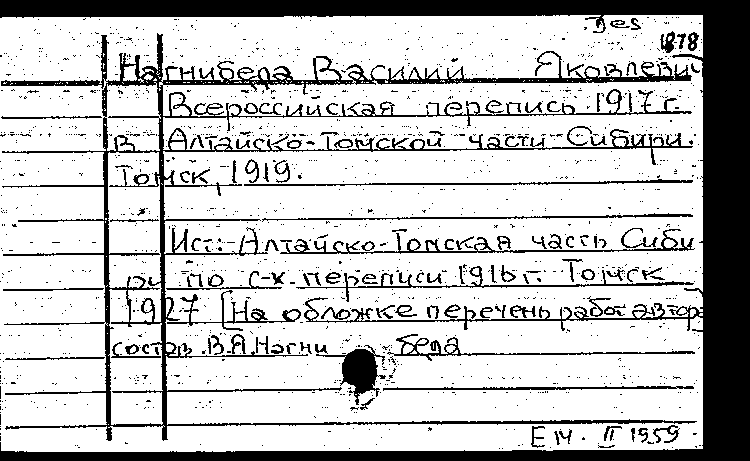 Дез
1878
Нагнибеда, Василий Яковлевич
Всероссийская перепись 1917 г.
в Алтайско-Томской части Сибири.
Томск, 1919.
Ист: Алтайско-Томская часть Сиби-
ри по с-х. переписи 1916 г. Томск
1927 [На обложке перечень работ автора
состав. В.Я. Нагни беда
Е 14. II 1959